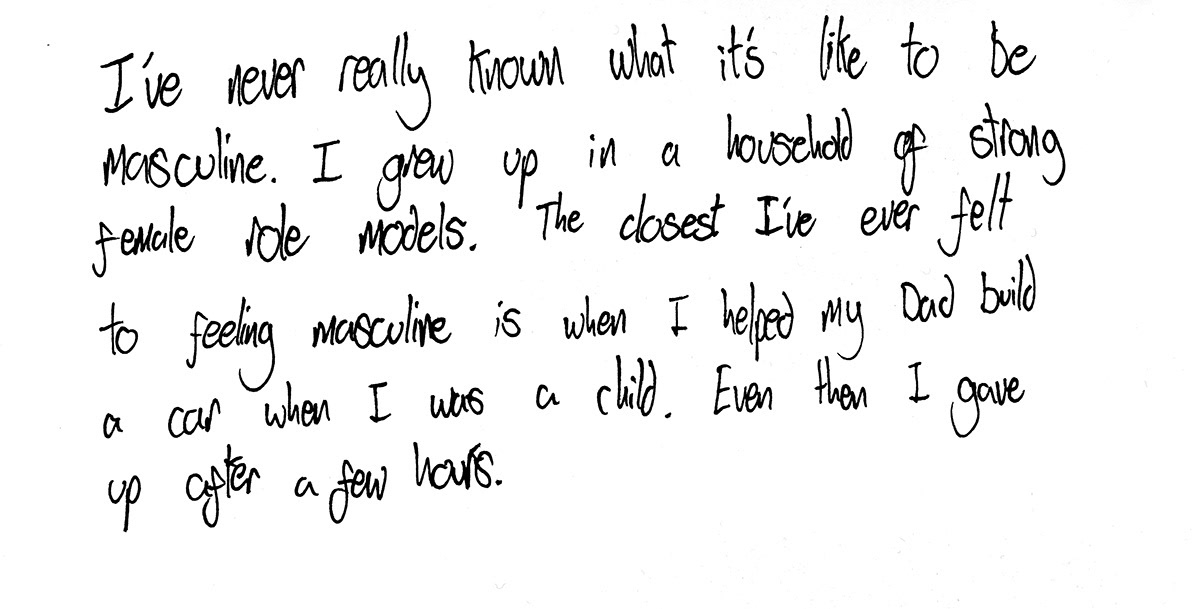 I've never really known what it's like to be
masculine. I grew up in a household of strong
female role models. The closest I've ever felt
to feeling masculine is when I helped my Dad build
a car when I was a child. Even then I gave
up after a few hours.